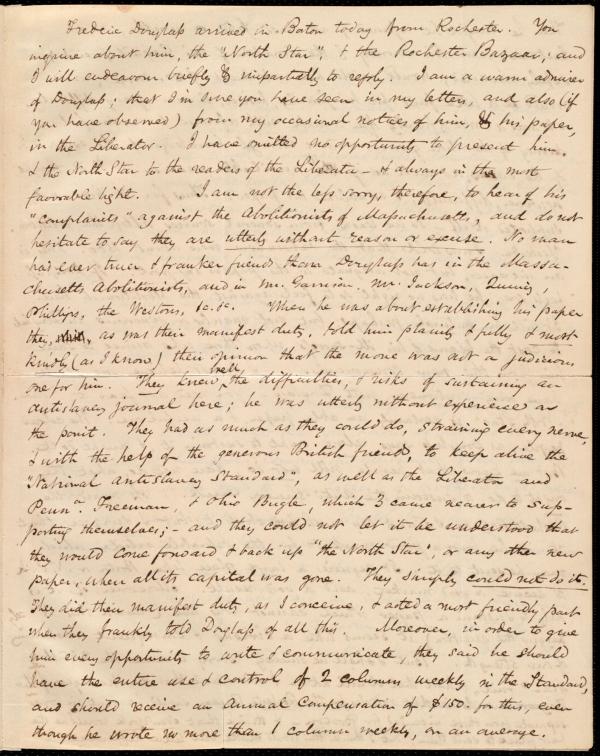 Frederic Douglass arrived in Boston today from Rochester. You
inquire about him, the "North Star", & the Rochester Bazaar; and
I will endeavour briefly & impartially to reply. I am a warm admirer
of Douglass; that I'm sure you have seen in my letters, and also (if
you have observed) from my occasional notices of him, & his paper,
in the Liberator. I have omitted no opportunity to present him,
& the North Star to the readers of the Liberator – & always in the most
favorable light. I am not the less sorry, therefore, to hear of his
"complaints" against the Abolitionists of Massachusetts, and do not
hesitate to say they are utterly without reason or excuse. No man
has ever truer & franker friends than Douglass has in the Massa-
chusetts Abolitionists, and in Mr. Garrison, Mr. Jackson, Quincy,
Phillips, the Westons, &c. &c. When he was about establishing his paper
they, as was their manifest duty, told him plainly & fully & most
kindly (as I know) their opinion that the move was not a judicious
one for him. They knew well the difficulties, & risks of sustaining an
antislavery journal here; he was utterly without experience on
the point. They had as much as they could do, straining every nerve,
& with the help of the generous British friends, to keep alive the
"National Antislavery Standard", as well as the Liberator and
Penna. Freeman, & Ohio Bugle, which 3 came nearer to sup-
porting themselves; – and they could not let it be understood that
they would come forward & back up "the North Star", or any other new
paper, when all its capital was gone. They simply could not do it.
They did their manifest duty, as I conceive, & acted a most friendly part
when they frankly told Douglass of all this. Moreover, in order to give
him every opportunity to write & communicate, they said he should
have the entire use & control of 2 columns weekly in the Standard,
and should receive an annual compensation of $150. for this, even
though he wrote no more than 1 column weekly, on an average.